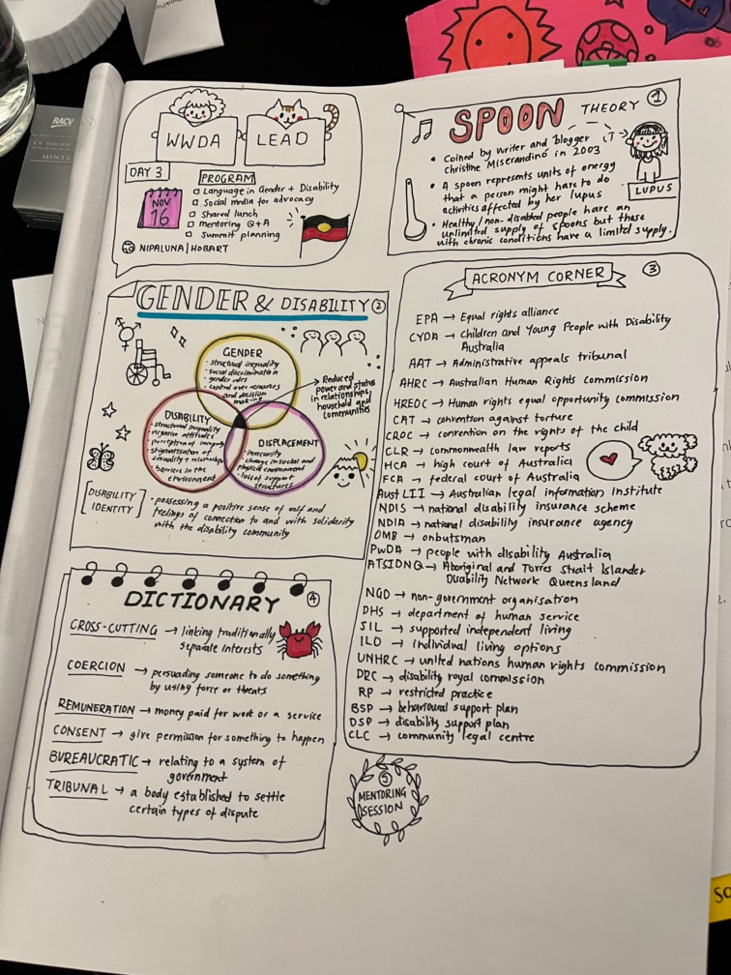 RACV
MINTS
WWDA
LEAD
DAY 3
NOV
16
PROGRAM
Language in Gender + Disability
Social media for advocacy
Shared lunch
mentoring Q+A
Summit planning
NIPALUNA/HOBART
SPOON THEORY 1
• Coined by writer and blogger
christine Miserandino in 2003
• A spoon represents units of energy
that a person might have to do
activities affected by her lupus
• Healthy/non-disabled people have an
unlimited supply of spoons but those
with chronic conditions have a limited supply.
LUPUS
GENDER & DISABILITY 2
GENDER
• structural inequality
• social discrimination
• gender roles
• control over resources
and decision
making
→ Reduced
power and status
in relationships,
household and
communities
DISABILITY
• structural inequality
• negative attitudes
• perception of incapacity
• stigmatisation of
sexuality + relationships
• barriers in the
environment
DISPLACEMENT
• insecurity
• change in social and
physical environment
• loss of support
structures
[DISABILITY
IDENTITY]
• possessing a positive sense of self and
feelings of connection to and with solidarity
with the disability community
ACRONYM CORNER 3
EPA → Equal rights alliance
CYDA → Children and Young People with Disability
Australia
AAT → Administrative appeals tribunal
AHRC → Australian Human Rights commission
HREOC → Human rights equal opportunity commission
CAT → convention against torture
CROC → convention on the rights of the child
CLR → commonwealth law reports
HCA → high court of Australia
FCA → federal court of Australia
Aust LII → Australian legal information Institute
NDIS → national disability insurance scheme
NDIA → national disability insurance agency
OMB → onbutsman
PwDA → people with disability Australia
ATSIDNQ → Aboriginal and Torres Strait Islander
Disability Network Queensland
NGO → non-government organisation
DHS → department of human service
SIL → supported independent living
ILO → individual living options
UNHRC → united nations human rights commission
DRC → disability royal commission
RP → restricted practice
BSP → behavioural support plan
DSP → disability support plan
CLC → community legal centre
DICTIONARY 4
CROSS-CUTTING → linking traditionally
separate interests
COERCION → persuading someone to do something
by using force or threats
REMUNERATION → money paid for work or a service
CONSENT → give permission for something to happen
BUREAUCRATIC → relating to a system of
government
TRIBUNAL → a body established to settle
certain types of dispute
5
MENTORING
SESSION